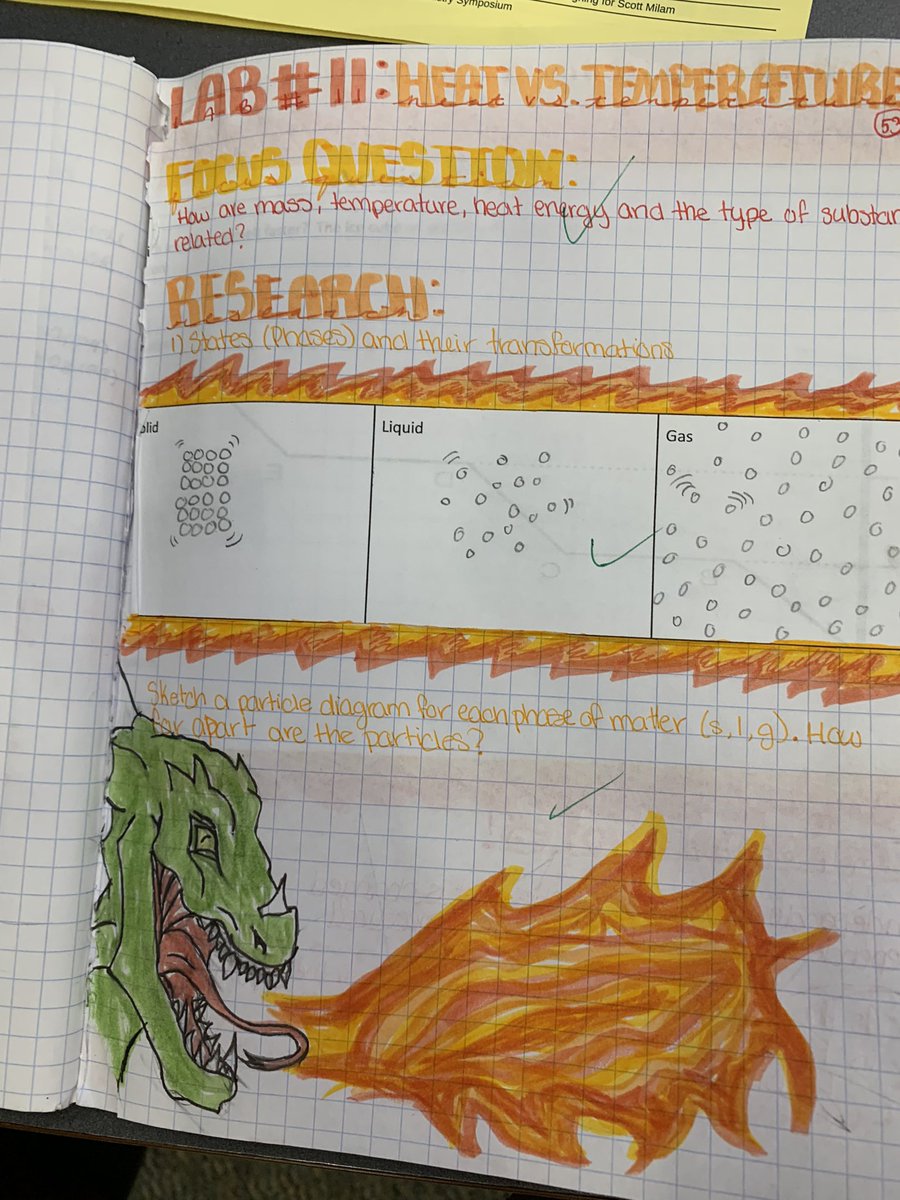 Symposium
for Scott Milam
LAB #11: HEAT VS. TEMPERATURE
LAB # heat vs. temperature
53
FOCUS QUESTION:
How are mass, temperature, heat energy and the type of substan
related?
RESEARCH:
1) States (Phases) and their transformations
olid
Liquid
Gas
Sketch a particle diagram for each phase of matter (s, l, g). How
far apart are the particles?